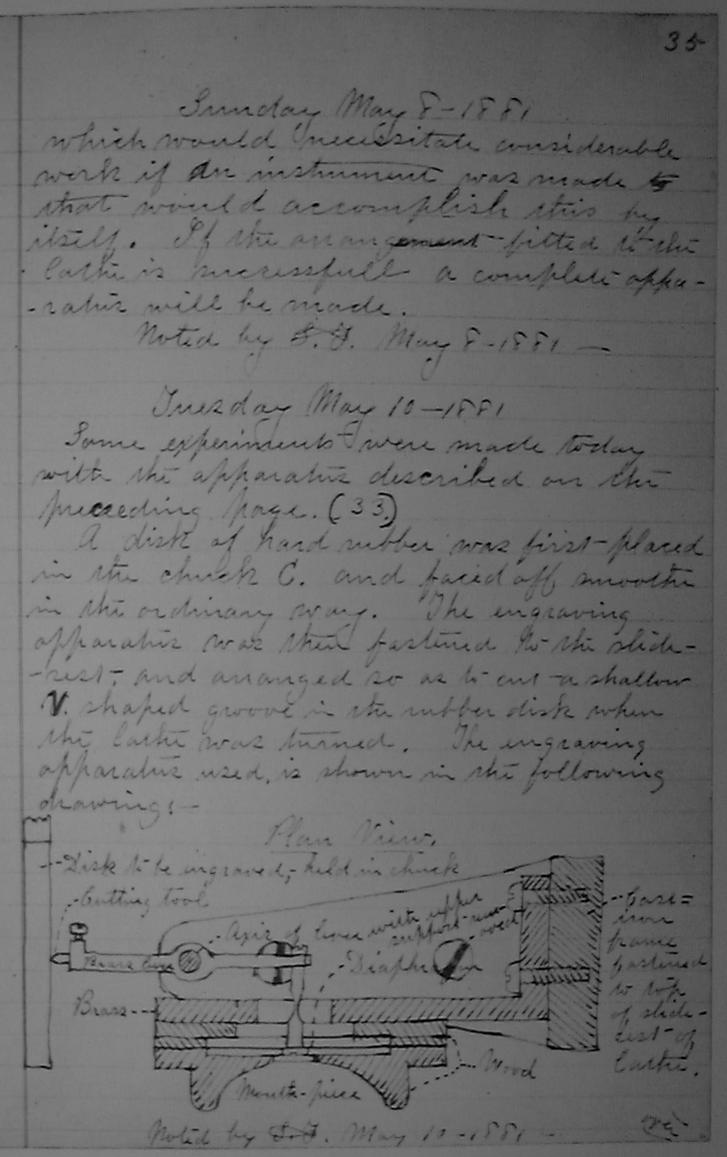 35
Sunday May 8-1881
which would necessitate considerable
work if an instrument was made to
that would accomplish this by
itself. If the arrangement fitted to the
lathe is successfull a complete appa-
-ratus will be made.
Noted by S.T. May 8-1881 —
Tuesday May 10-1881
Some experiments were made today
with the apparatus described on the
preceeding page. (33)
A disk of hard rubber was first placed
in the chuck C. and faced off smooth
in the ordinary way. The engraving
apparatus was then fastened to the slide-
-rest, and arranged so as to cut a shallow
V. shaped groove in the rubber disk when
the lathe was turned. The engraving
apparatus used, is shown in the following
drawing:—
Plan View.
Disk to be ingraved, held in chuck
Cutting tool
Axis of lever with upper
support removed
Brass lever
Diaphragm
Brass
Cast=
iron
frame
fastened
to top
of slide-
rest of
lathe.
Wood
Mouth-piece
Noted by S.T. May 10-1881 —